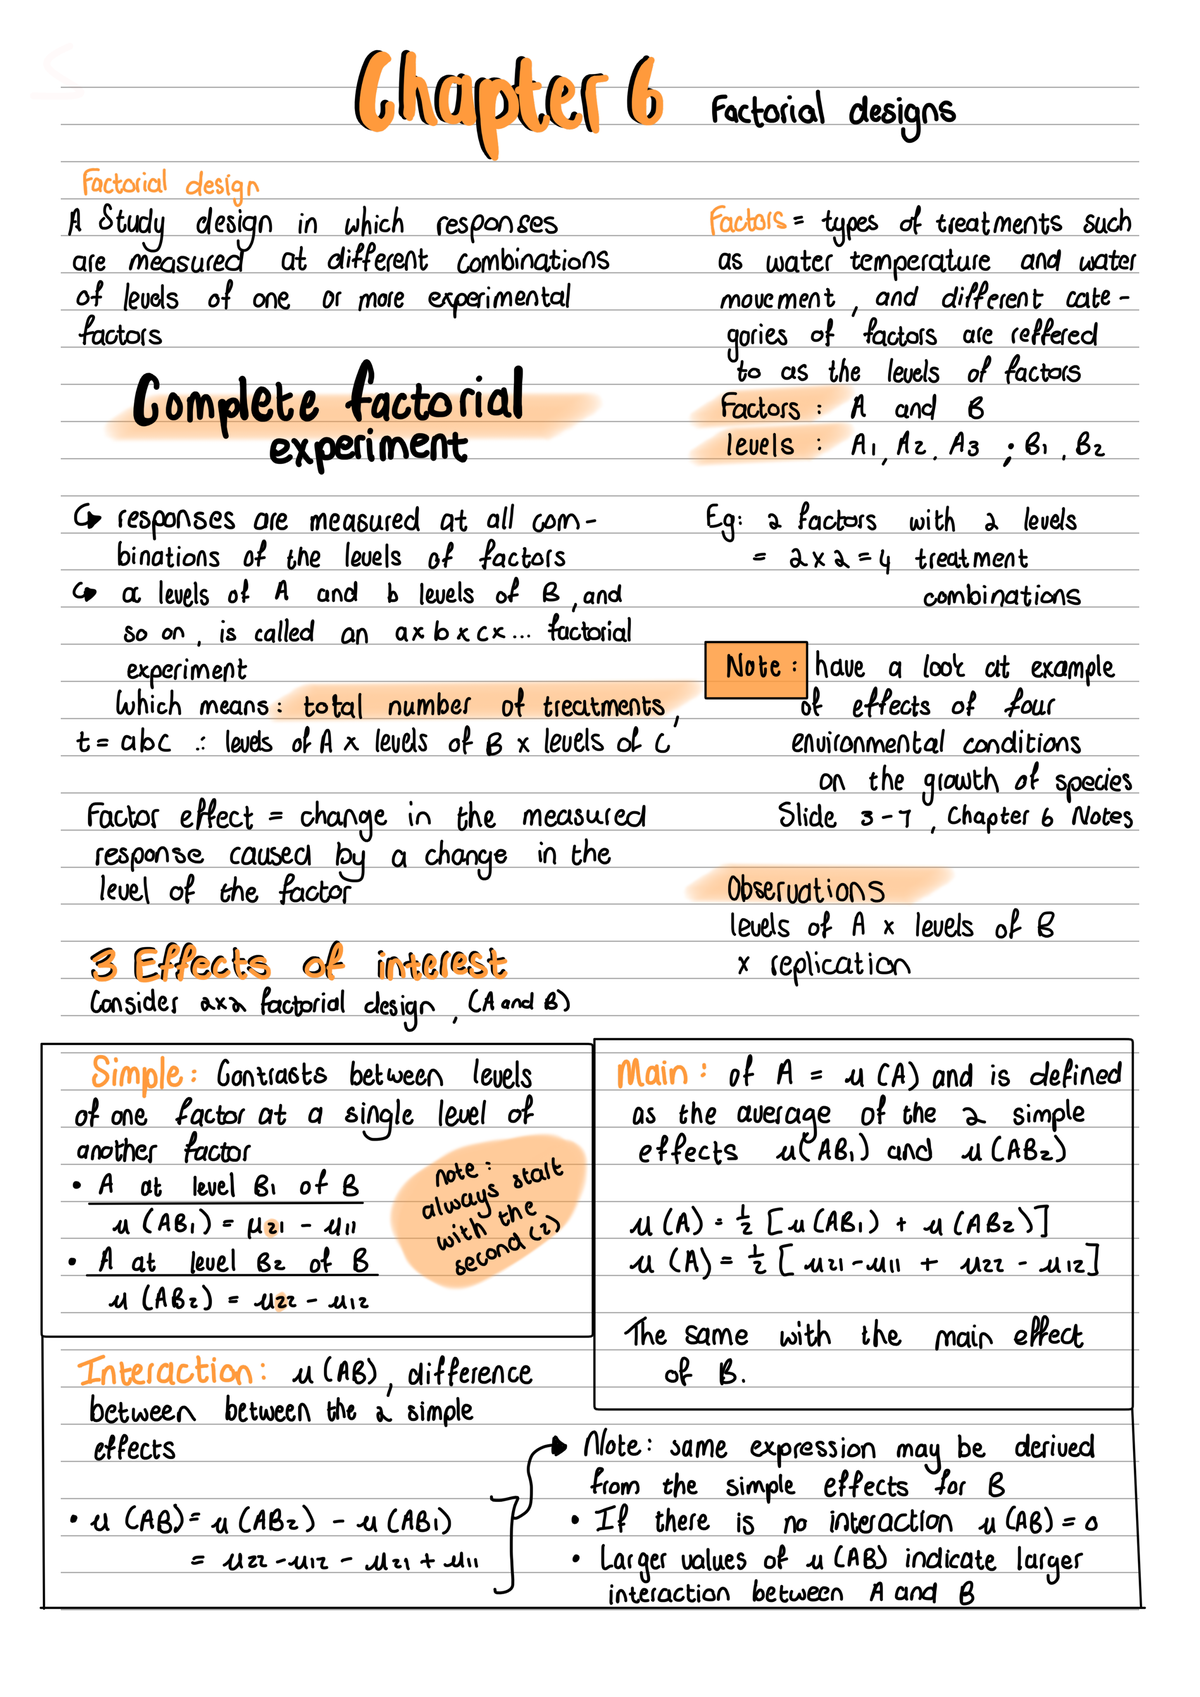 Chapter 6 Factorial designs
Factorial design
A Study design in which responses
are measured at different combinations
of levels of one or more experimental
factors
Complete factorial
experiment
↪ responses are measured at all com-
binations of the levels of factors
↪ a levels of A and b levels of B, and
so on, is called an a×b×c×... factorial
experiment
Which means: total number of treatments,
t = abc ∴ levels of A × levels of B × levels of C
Factor effect = change in the measured
response caused by a change in the
level of the factor
Factors = types of treatments such
as water temperature and water
movement, and different cate-
gories of factors are reffered
to as the levels of factors
Factors: A and B
levels: A1, A2, A3 ; B1, B2
Eg: 2 factors with 2 levels
= 2×2=4 treatment
combinations
Note: have a look at example
of effects of four
environmental conditions
on the growth of species
Slide 3-7, Chapter 6 Notes
Observations
levels of A × levels of B
× replication
3 Effects of interest
Consider 2×2 factorial design, (A and B)
Simple: Contrasts between levels
of one factor at a single level of
another factor
• A at level B1 of B
μ(AB1) = μ21 - μ11
• A at level B2 of B
μ(AB2) = μ22 - μ12
note:
always start
with the
second (2)
Main: of A = μ(A) and is defined
as the average of the 2 simple
effects μ(AB1) and μ(AB2)
μ(A) = ½ [μ(AB1) + μ(AB2)]
μ(A) = ½ [μ21-μ11 + μ22 - μ12]
The same with the main effect
of B.
Interaction: μ(AB), difference
between between the 2 simple
effects
• μ(AB) = μ(AB2) - μ(AB1)
= μ22 - μ12 - μ21 + μ11
Note: same expression may be derived
from the simple effects for B
• If there is no interaction μ(AB) = 0
• Larger values of μ(AB) indicate larger
interaction between A and B